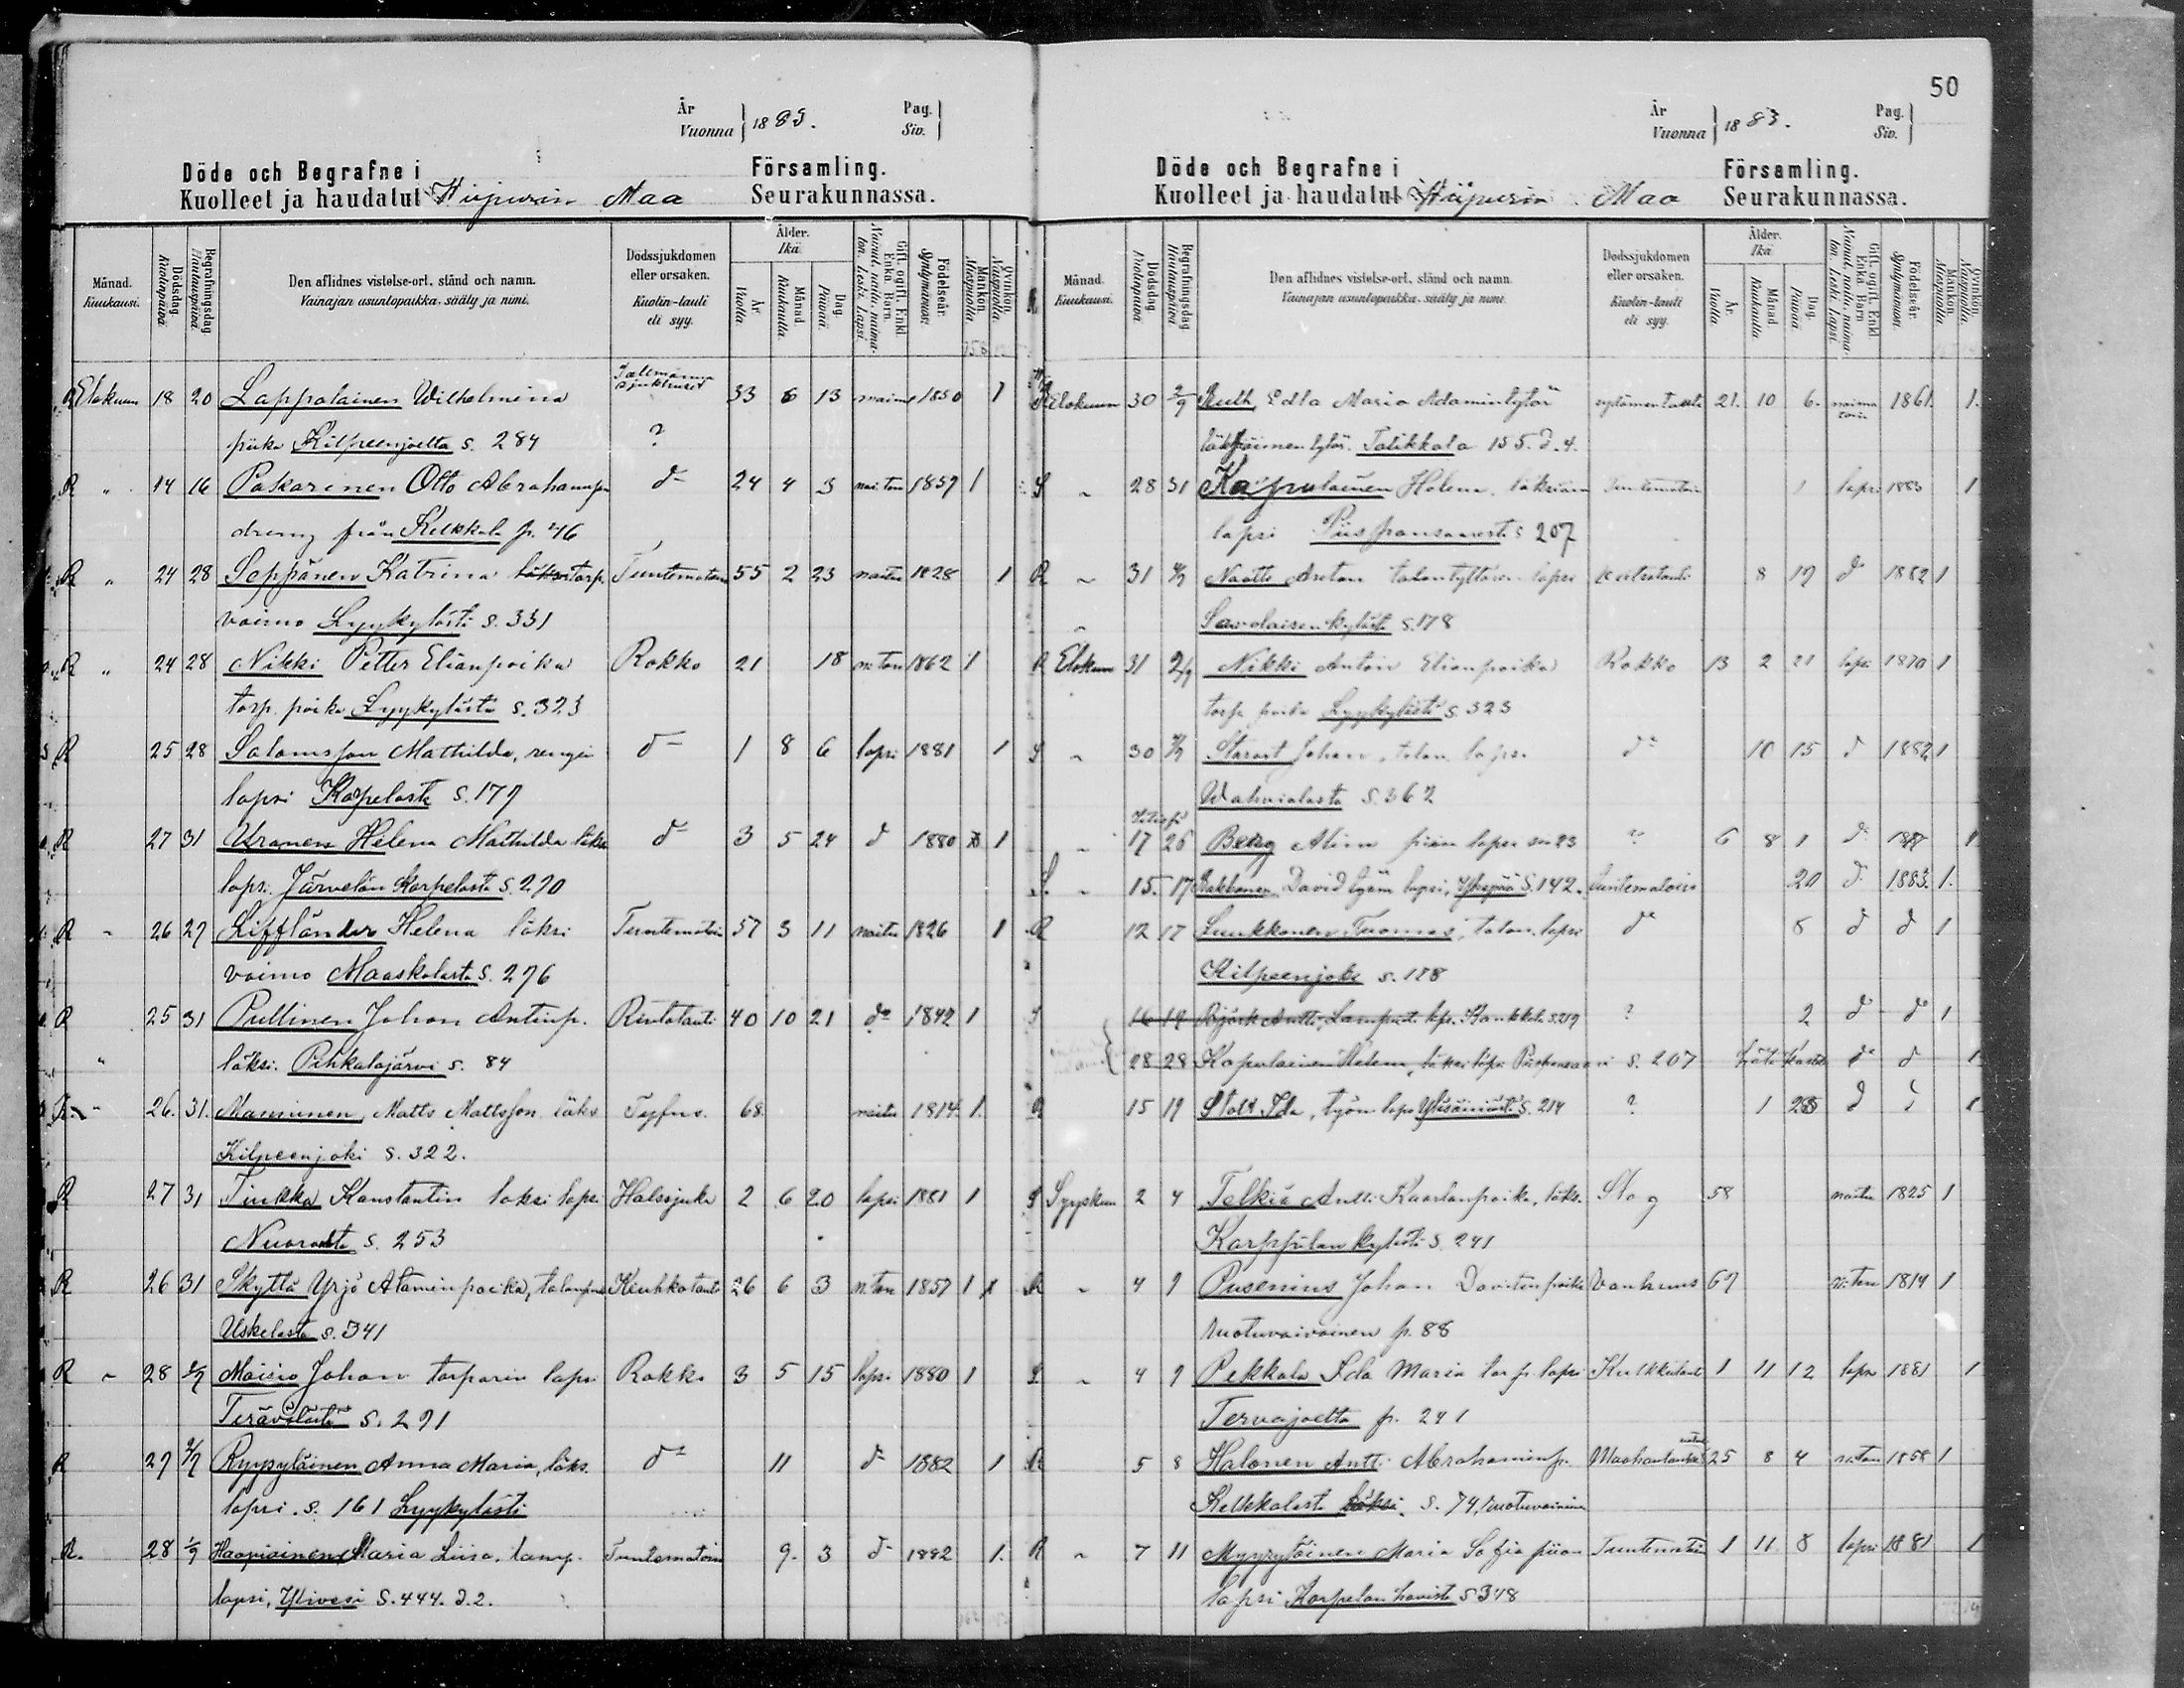 År
Vuonna } 1883.
Pag.
Siv.
Döde och Begrafne i Församling.
Kuolleet ja haudatut Wiipurin Maa Seurakunnassa.
Månad. Kuukausi.
Dödsdag. Kuolinpäivä.
Begrafningsdag. Hautauspäivä.
Den aflidnes vistelse-ort, stånd och namn.
Vainajan asuntopaikka, sääty ja nimi.
Dödssjukdomen eller orsaken.
Kuolin-tauti eli syy.
Ålder. Ikä.
År. Vuotta
Månad. Kuukautta.
Dag. Päivää.
Gift, ogift, Enkl. Enka, Barn.
Födelseår. Syntymävuosi.
Mankön. Miespuolia.
Qvinkön. Naispuolia.
Elokuun 18 20 Lappalainen Wilhelmina 33 6 13 1850 1
piika Kilpeenjoelta s. 284 ?
R " 14 16 Pakarinen Otto Abrahamp. d:o 24 4 3 nai.ton 1859 1
dreng från Kelkkala p. 46
R " 24 28 Seppänen Katrina torp. Tuntematoin 55 2 23 naitu 1828 1
vaimo Lyykylästä s. 331
R " 24 28 Nikki Petter Elianpoika Rokko 21 18 n:ton 1862 1
torp. poika Lyykylästä s. 323
R 25 28 Salomsson Mathilda, rengin d:o 1 8 6 lapsi 1881 1
lapsi Karpelasta S. 177
R 27 31 Uranen Helena Mathilda läks. d:o 3 5 24 d:o 1880 1
lapsi. Järvelän Karpelasta S. 290
R " 26 27 Liffländer Helena läksi Tuntematoin 57 3 11 naitu 1826 1
vaimo Maaskolasta S. 276
R 25 31 Pullinen Johan Antinp. Rintatauti 40 10 21 d:o 1842 1
" läksi. Pihkalajärvi s. 84
R " 26. 31. Manninen, Matts Mattsson läks Tyfus. 68. naitu 1814. 1.
Kilpeenjoki S. 322.
R 27 31 Tiukka Konstantin läksi lapsi Halssjuka 2 6 20 lapsi 1881 1
Nuoraalta s. 253
R 26 31 Skyttä Yrjö Ataminpoika, talonp. Keuhkotauti 26 6 3 n:ton 1857 1
Uskelasta s. 341
R " 28 2/9 Moisio Johan torparin lapsi Rokko 3 5 15 lapsi 1880 1
Terävälästä S. 291
R 29 2/9 Ryypyläinen Anna Maria, läks. d:o 11 d:o 1882 1
lapsi. s. 161 Lyykylästä
R. 28 1/9 Haapiainen Maria Liisa, Tuntematoin 9. 3 d:o 1882 1.
lapsi, Ylivesi S. 444. d. 2.
50
År
Vuonna } 1883.
Pag.
Siv.
Döde och Begrafne i Församling.
Kuolleet ja haudatut Wiipurin Maa Seurakunnassa.
Månad. Kuukausi.
Dödsdag. Kuolinpäivä
Begrafningsdag. Hautauspäivä
Den aflidnes vistelse-ort, stånd och namn.
Vainajan asuntopaikka, sääty ja nimi.
Dödssjukdomen eller orsaken.
Kuolin-tauti eli syy.
Ålder. Ikä.
År. Vuotta
Månad. Kuukautta.
Dag. Päivää.
Gift, ogift, Enkl. Enka, Barn
Födelseår. Syntymävuosi.
Mankön. Miespuolia
Qvinkön. Naispuolia.
Elokuun 30 2/9 Ruth, Edla Maria Adamintytär 21. 10 6. 1861. 1.
tytär. Tatikkala 155. d. 4.
S " 28 31 Kapulainen Helena, Tuntematoin 1 lapsi 1883 1
lapsi Piispansaaresta s 207
R " 31 Naatti Anton talon tyttären lapsi 8 19 d:o 1882 1
" Sawolaisenkylästä s. 178
R Elokuun 31 2/9 Nikki Anton Elianpoika Rokko 13 2 21 lapsi 1870 1
torp. poika Lyykylästä s. 323
S " 30 Starast Johan, talon lapsi d:o 10 15 d:o 1882 1
Wahvialasta S. 362
" 17 26 Berg Alina piian lapsi ? 6 8 1 d:o 1
S. " 15. 17 Kakkonen David työm lapsi, Yksipää S. 142. tuntematoin 20 d:o 1883. 1.
R 12 17 Luukkonen Tuomas, talon. lapsi d:o 8 d:o d:o 1
Kilpeenjoki s. 188
S 16 19 Björk Antti, lap. Kankkala s. 219 ? 2 d:o d:o 1
28 28 Kapulainen Helena, läksi lapsi Piispansaari s. 207 d:o d:o 1
R 15 19 Stolt Ida, työm lapsi Ylisäiniöstä S. 214 ? 1 d:o 1
S Syyskuu 2 4 Telkiä Antti Kaarlonpoika, läks. Slag 58 naitu 1825 1
Karppilan kylästä s. 241
R " 4 9 Pusenius Johan Davitinpoika Vanhuus 69 n:ton 1814 1
Ruotuvaivainen p. 88
S " 4 9 Pekkala Ida Maria torp. lapsi Kulkkutauti 1 11 12 lapsi 1881 1
Tervajoelta p. 241
R 5 8 Halonen Antti Abrahaminp. 25 8 4 n:ton 1858 1
Kelkkalasta läksi. s. 74, ruotuvaivainen
R " 7 11 Myyryläinen Maria Sofia piian Tuntematoin 1 11 8 lapsi 1881 1
lapsi Karpelan hovista S 348